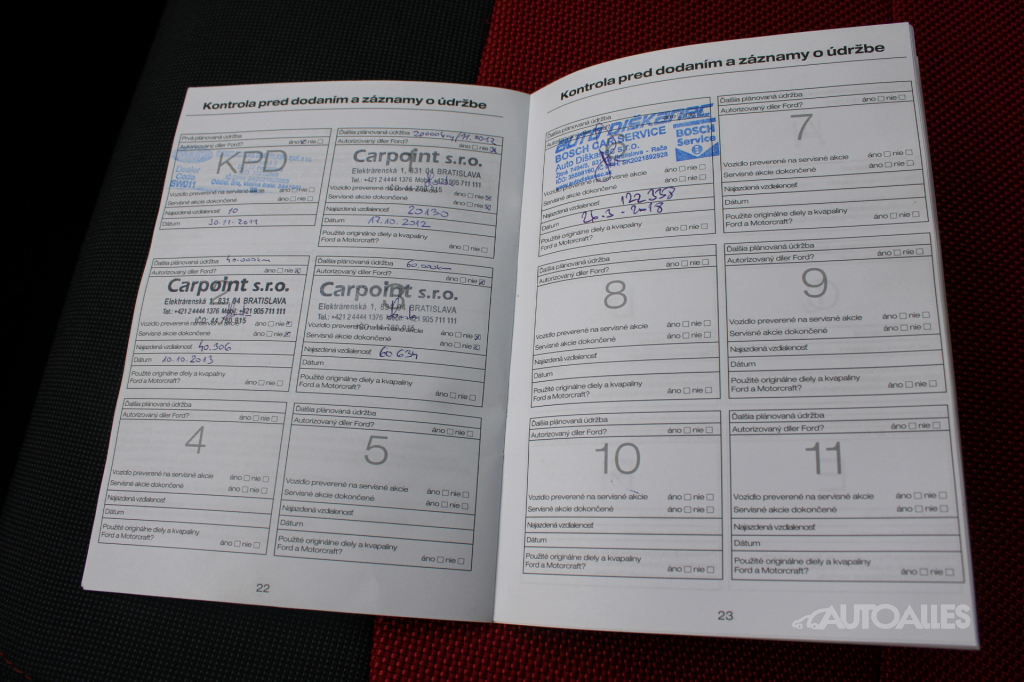 Kontrola pred dodaním a záznamy o údržbe
Prvá plánovaná údržba
Autorizovaný díler Ford? áno nie
KPD
Vozidlo preverené na servisné akcie áno nie
Najazdená vzdialenosť 10
Dátum 30.11.2011
Ďalšia plánovaná údržba 20000km/11.2012
Autorizovaný díler Ford? áno nie
Carpoint s.r.o.
Elektrárenská 1, 831 04 BRATISLAVA
Tel.: +421 2 4444 1376 Mobil: +421 905 711 111
IČO: 44 780 915
Vozidlo preverené na servisné akcie
Servisné akcie dokončené áno nie
Najazdená vzdialenosť 20130
Dátum 17.10.2012
Použité originálne diely a kvapaliny
Ford a Motorcraft? áno nie
Ďalšia plánovaná údržba 40.000km
Autorizovaný díler Ford? áno nie
Carpoint s.r.o.
Elektrárenská 1, 831 04 BRATISLAVA
Tel.: +421 2 4444 1376 Mobil: +421 905 711 111
IČO: 44 780 915
Vozidlo preverené na servisné akcie áno nie
Servisné akcie dokončené áno nie
Najazdená vzdialenosť 40.306
Dátum 10.10.2013
Použité originálne diely a kvapaliny
Ford a Motorcraft? áno nie
Ďalšia plánovaná údržba 60.000km
Autorizovaný díler Ford? áno nie
Carpoint s.r.o.
Elektrárenská 1, 831 04 BRATISLAVA
Tel.: +421 2 4444 1376 Mobil: +421 905 711 111
IČO: 44 780 915
Vozidlo preverené na servisné akcie áno nie
Servisné akcie dokončené áno nie
Najazdená vzdialenosť 60 634
Dátum
Použité originálne diely a kvapaliny
Ford a Motorcraft? áno nie
Ďalšia plánovaná údržba
Autorizovaný díler Ford? áno nie
4
Vozidlo preverené na servisné akcie áno nie
Servisné akcie dokončené áno nie
Najazdená vzdialenosť
Dátum
Použité originálne diely a kvapaliny
Ford a Motorcraft? áno nie
Ďalšia plánovaná údržba
Autorizovaný díler Ford? áno nie
5
Vozidlo preverené na servisné akcie áno nie
Servisné akcie dokončené áno nie
Najazdená vzdialenosť
Dátum
Použité originálne diely a kvapaliny
Ford a Motorcraft? áno nie
22
Kontrola pred dodaním a záznamy o údržbe
Ďalšia plánovaná údržba
AUTO DIŠKANEC
BOSCH CAR SERVICE
Auto Diškanec s.r.o.
BOSCH
Service
Vozidlo preverené na servisné akcie áno nie
Servisné akcie dokončené áno nie
Najazdená vzdialenosť 122 338
Dátum 26.3.2018
Použité originálne diely a kvapaliny
Ford a Motorcraft? áno nie
Ďalšia plánovaná údržba áno nie
Autorizovaný díler Ford?
7
Vozidlo preverené na servisné akcie áno nie
Servisné akcie dokončené áno nie
Najazdená vzdialenosť
Dátum
Použité originálne diely a kvapaliny
Ford a Motorcraft? áno nie
Ďalšia plánovaná údržba
Autorizovaný díler Ford? áno nie
8
Vozidlo preverené na servisné akcie áno nie
Servisné akcie dokončené áno nie
Najazdená vzdialenosť
Dátum
Použité originálne diely a kvapaliny
Ford a Motorcraft? áno nie
Ďalšia plánovaná údržba
Autorizovaný díler Ford? áno nie
9
Vozidlo preverené na servisné akcie áno nie
Servisné akcie dokončené áno nie
Najazdená vzdialenosť
Dátum
Použité originálne diely a kvapaliny
Ford a Motorcraft? áno nie
Ďalšia plánovaná údržba
Autorizovaný díler Ford? áno nie
10
Vozidlo preverené na servisné akcie áno nie
Servisné akcie dokončené áno nie
Najazdená vzdialenosť
Dátum
Použité originálne diely a kvapaliny
Ford a Motorcraft? áno nie
Ďalšia plánovaná údržba
Autorizovaný díler Ford? áno nie
11
Vozidlo preverené na servisné akcie áno nie
Servisné akcie dokončené áno nie
Najazdená vzdialenosť
Dátum
Použité originálne diely a kvapaliny
Ford a Motorcraft? áno nie
23
AUTOALLES